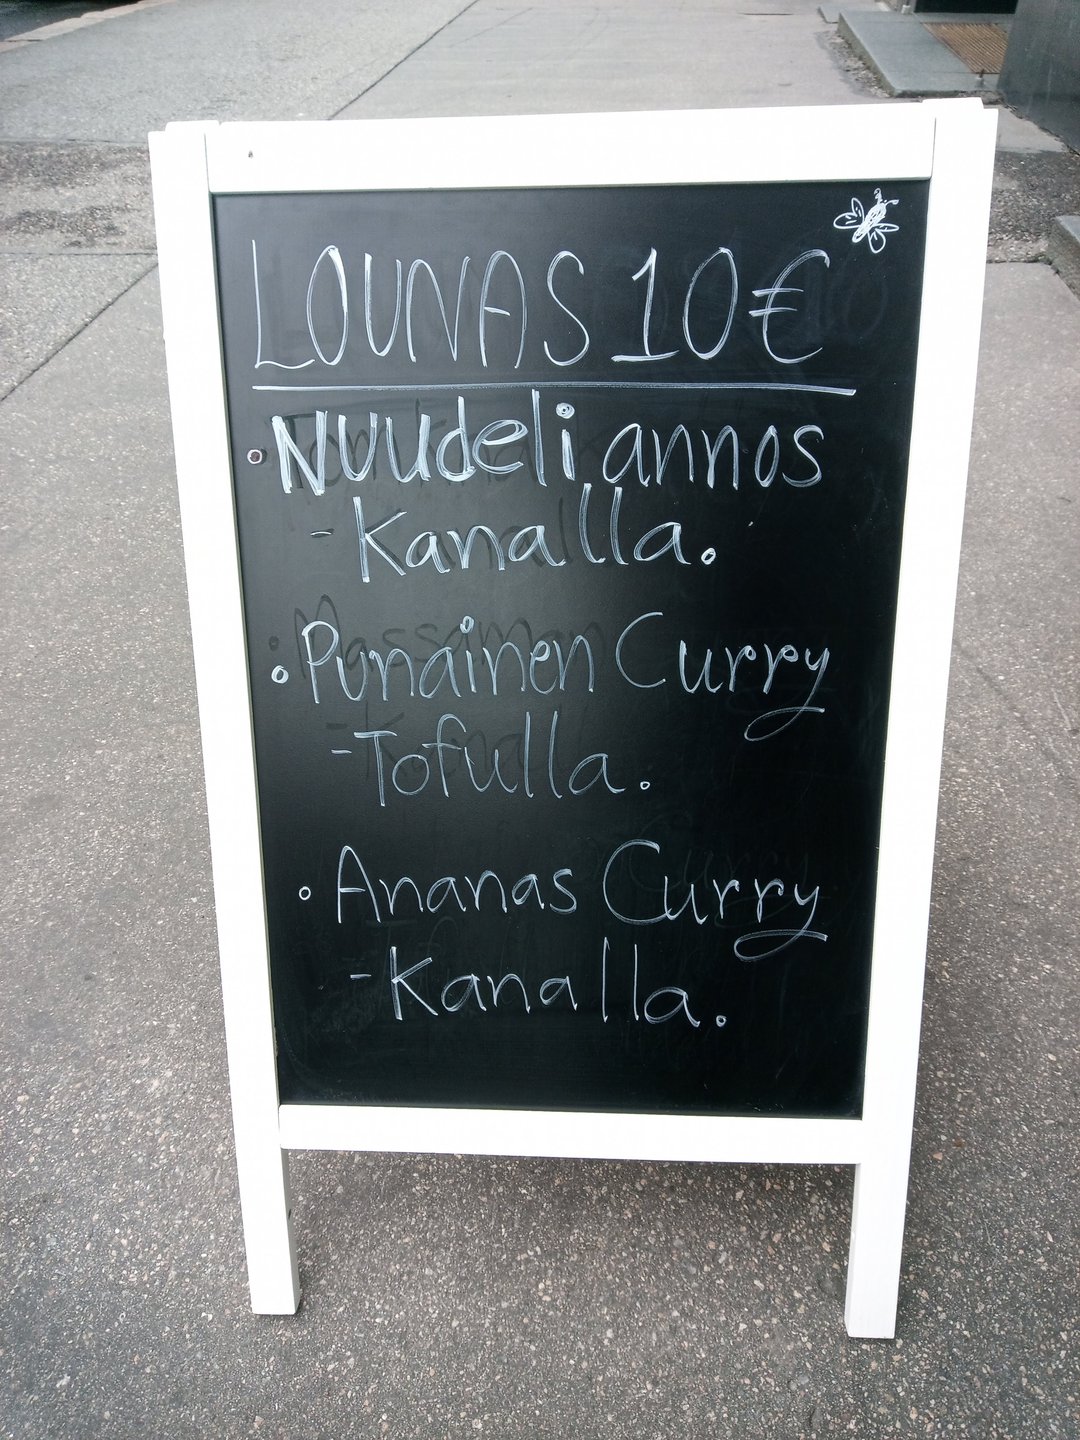 LOUNAS 10€
• Nuudeliannos
- Kanalla.
• Punainen Curry
- Tofulla.
• Ananas Curry
- Kanalla.